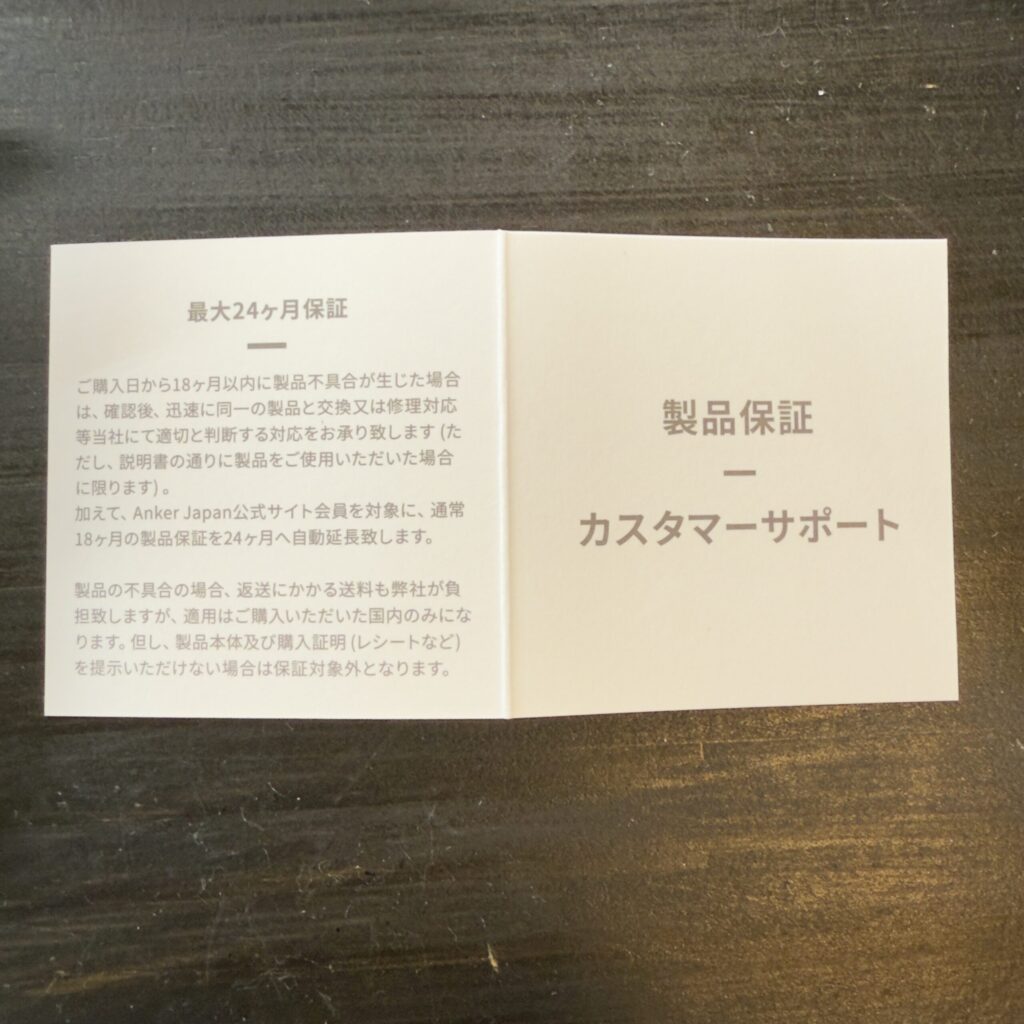 最大24ヶ月保証
ご購入日から18ヶ月以内に製品不具合が生じた場合
は、確認後、迅速に同一の製品と交換又は修理対応
等当社にて適切と判断する対応をお承り致します (た
だし、説明書の通りに製品をご使用いただいた場合
に限ります) 。
加えて、Anker Japan公式サイト会員を対象に、通常
18ヶ月の製品保証を24ヶ月へ自動延長致します。
製品の不具合の場合、返送にかかる送料も弊社が負
担致しますが、適用はご購入いただいた国内のみにな
ります。但し、製品本体及び購入証明 (レシートなど)
を提示いただけない場合は保証対象外となります。
製品保証
カスタマーサポート